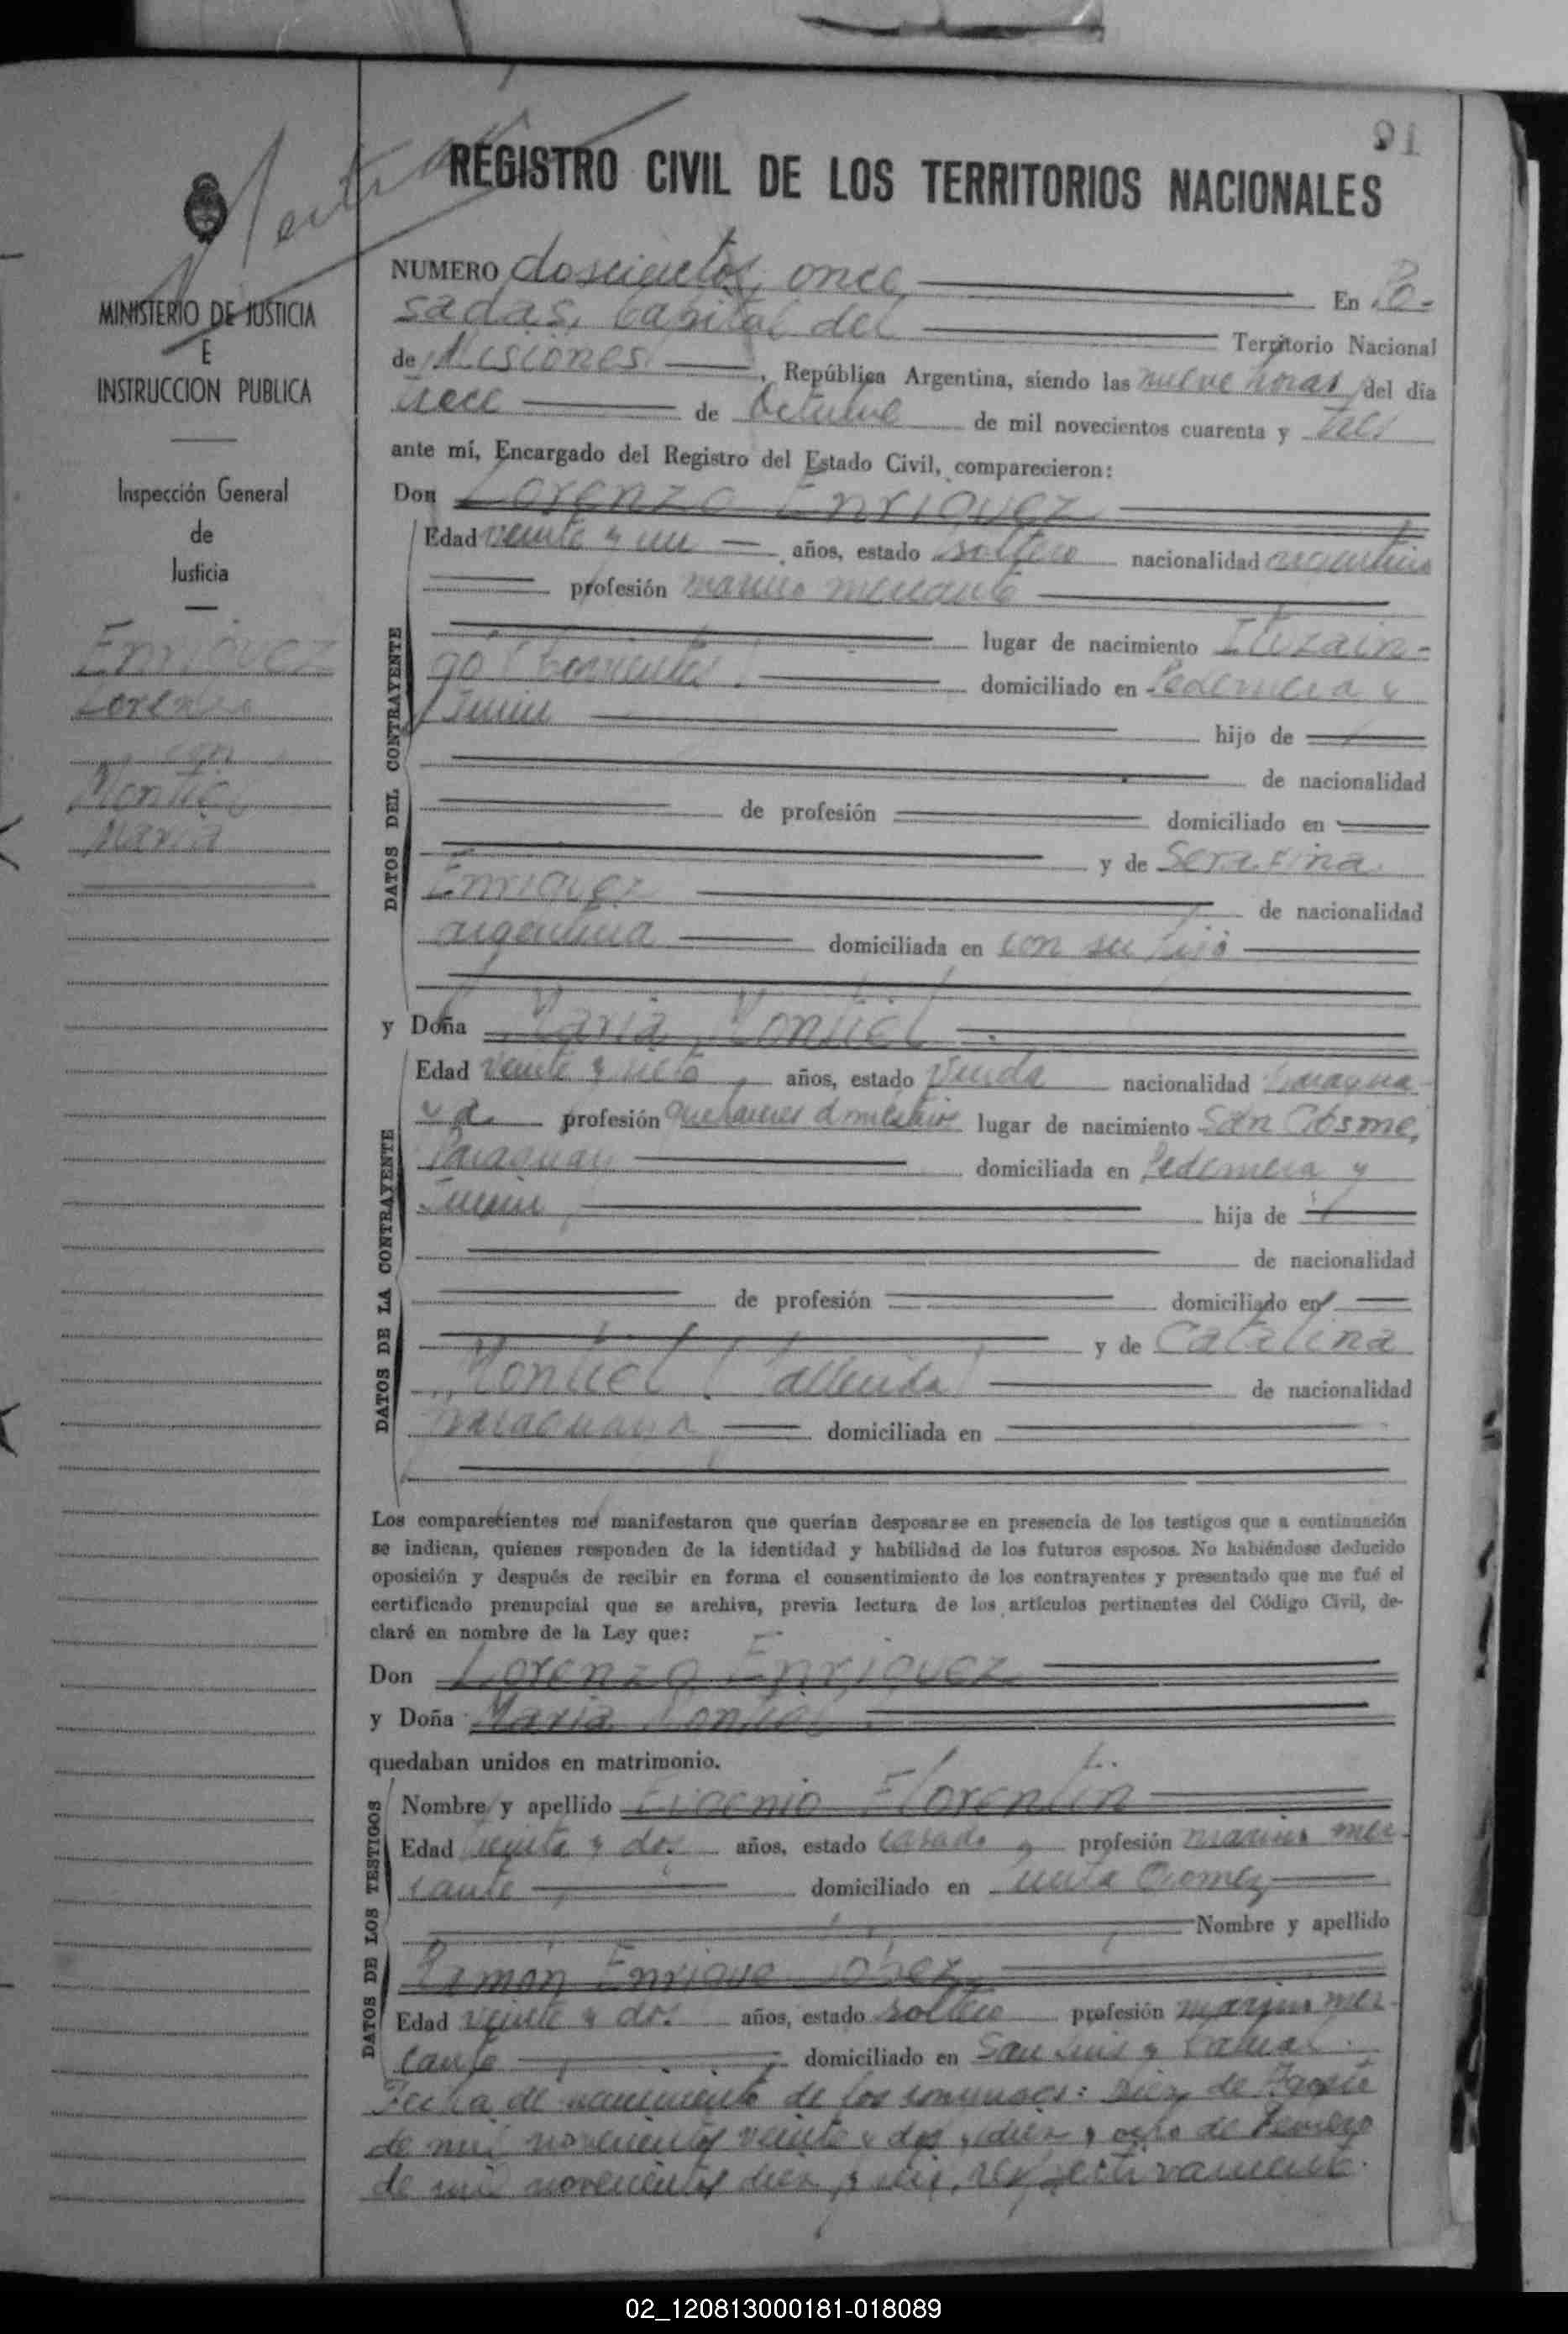 91
REGISTRO CIVIL DE LOS TERRITORIOS NACIONALES
MINISTERIO DE JUSTICIA
E
INSTRUCCION PUBLICA
Inspección General
de
Justicia
Enriquez
Lorenzo
con
Montiel
Maria
NUMERO doscientos once En Po-
sadas, Capital del Territorio Nacional
de Misiones, República Argentina, siendo las nueve horas del día
trece de Octubre de mil novecientos cuarenta y tres
ante mí, Encargado del Registro del Estado Civil, comparecieron:
Don Lorenzo Enriquez
DATOS DEL CONTRAYENTE
Edad veinte y un años, estado soltero nacionalidad argentino
profesión marino mercante
lugar de nacimiento Ituzain-
gó (Corrientes) domiciliado en Pedernera y
Junin hijo de
de nacionalidad
de profesión domiciliado en
y de Serafina
Enriquez de nacionalidad
argentina domiciliada en con su hijo
y Doña Maria Montiel
DATOS DE LA CONTRAYENTE
Edad veinte y siete, años, estado viuda nacionalidad paragua-
ya profesión quehaceres domésticos lugar de nacimiento San Cosme,
Paraguay domiciliada en Pedernera y
Junin, hija de
de nacionalidad
de profesión domiciliado en
y de Catalina
Montiel (fallecida) de nacionalidad
paraguaya domiciliada en
Los comparecientes me manifestaron que querían desposarse en presencia de los testigos que a continuación
se indican, quienes responden de la identidad y habilidad de los futuros esposos. No habiéndose deducido
oposición y después de recibir en forma el consentimiento de los contrayentes y presentado que me fué el
certificado prenupcial que se archiva, previa lectura de los artículos pertinentes del Código Civil, de-
claré en nombre de la Ley que:
Don Lorenzo Enriquez
y Doña Maria Montiel
quedaban unidos en matrimonio.
DATOS DE LOS TESTIGOS
Nombre y apellido Eugenio Florentin
Edad treinta y dos años, estado casado, profesión marino mer-
cante domiciliado en
Nombre y apellido
Ramón Enrique López
Edad veinte y dos años, estado soltero profesión marino mer-
cante domiciliado en San Luis y
Fecha de nacimiento de los conyuges: diez de Agosto
de mil novecientos veinte y dos y diez y ocho de Febrero
de mil novecientos diez y seis, respectivamente.
02_120813000181-018089